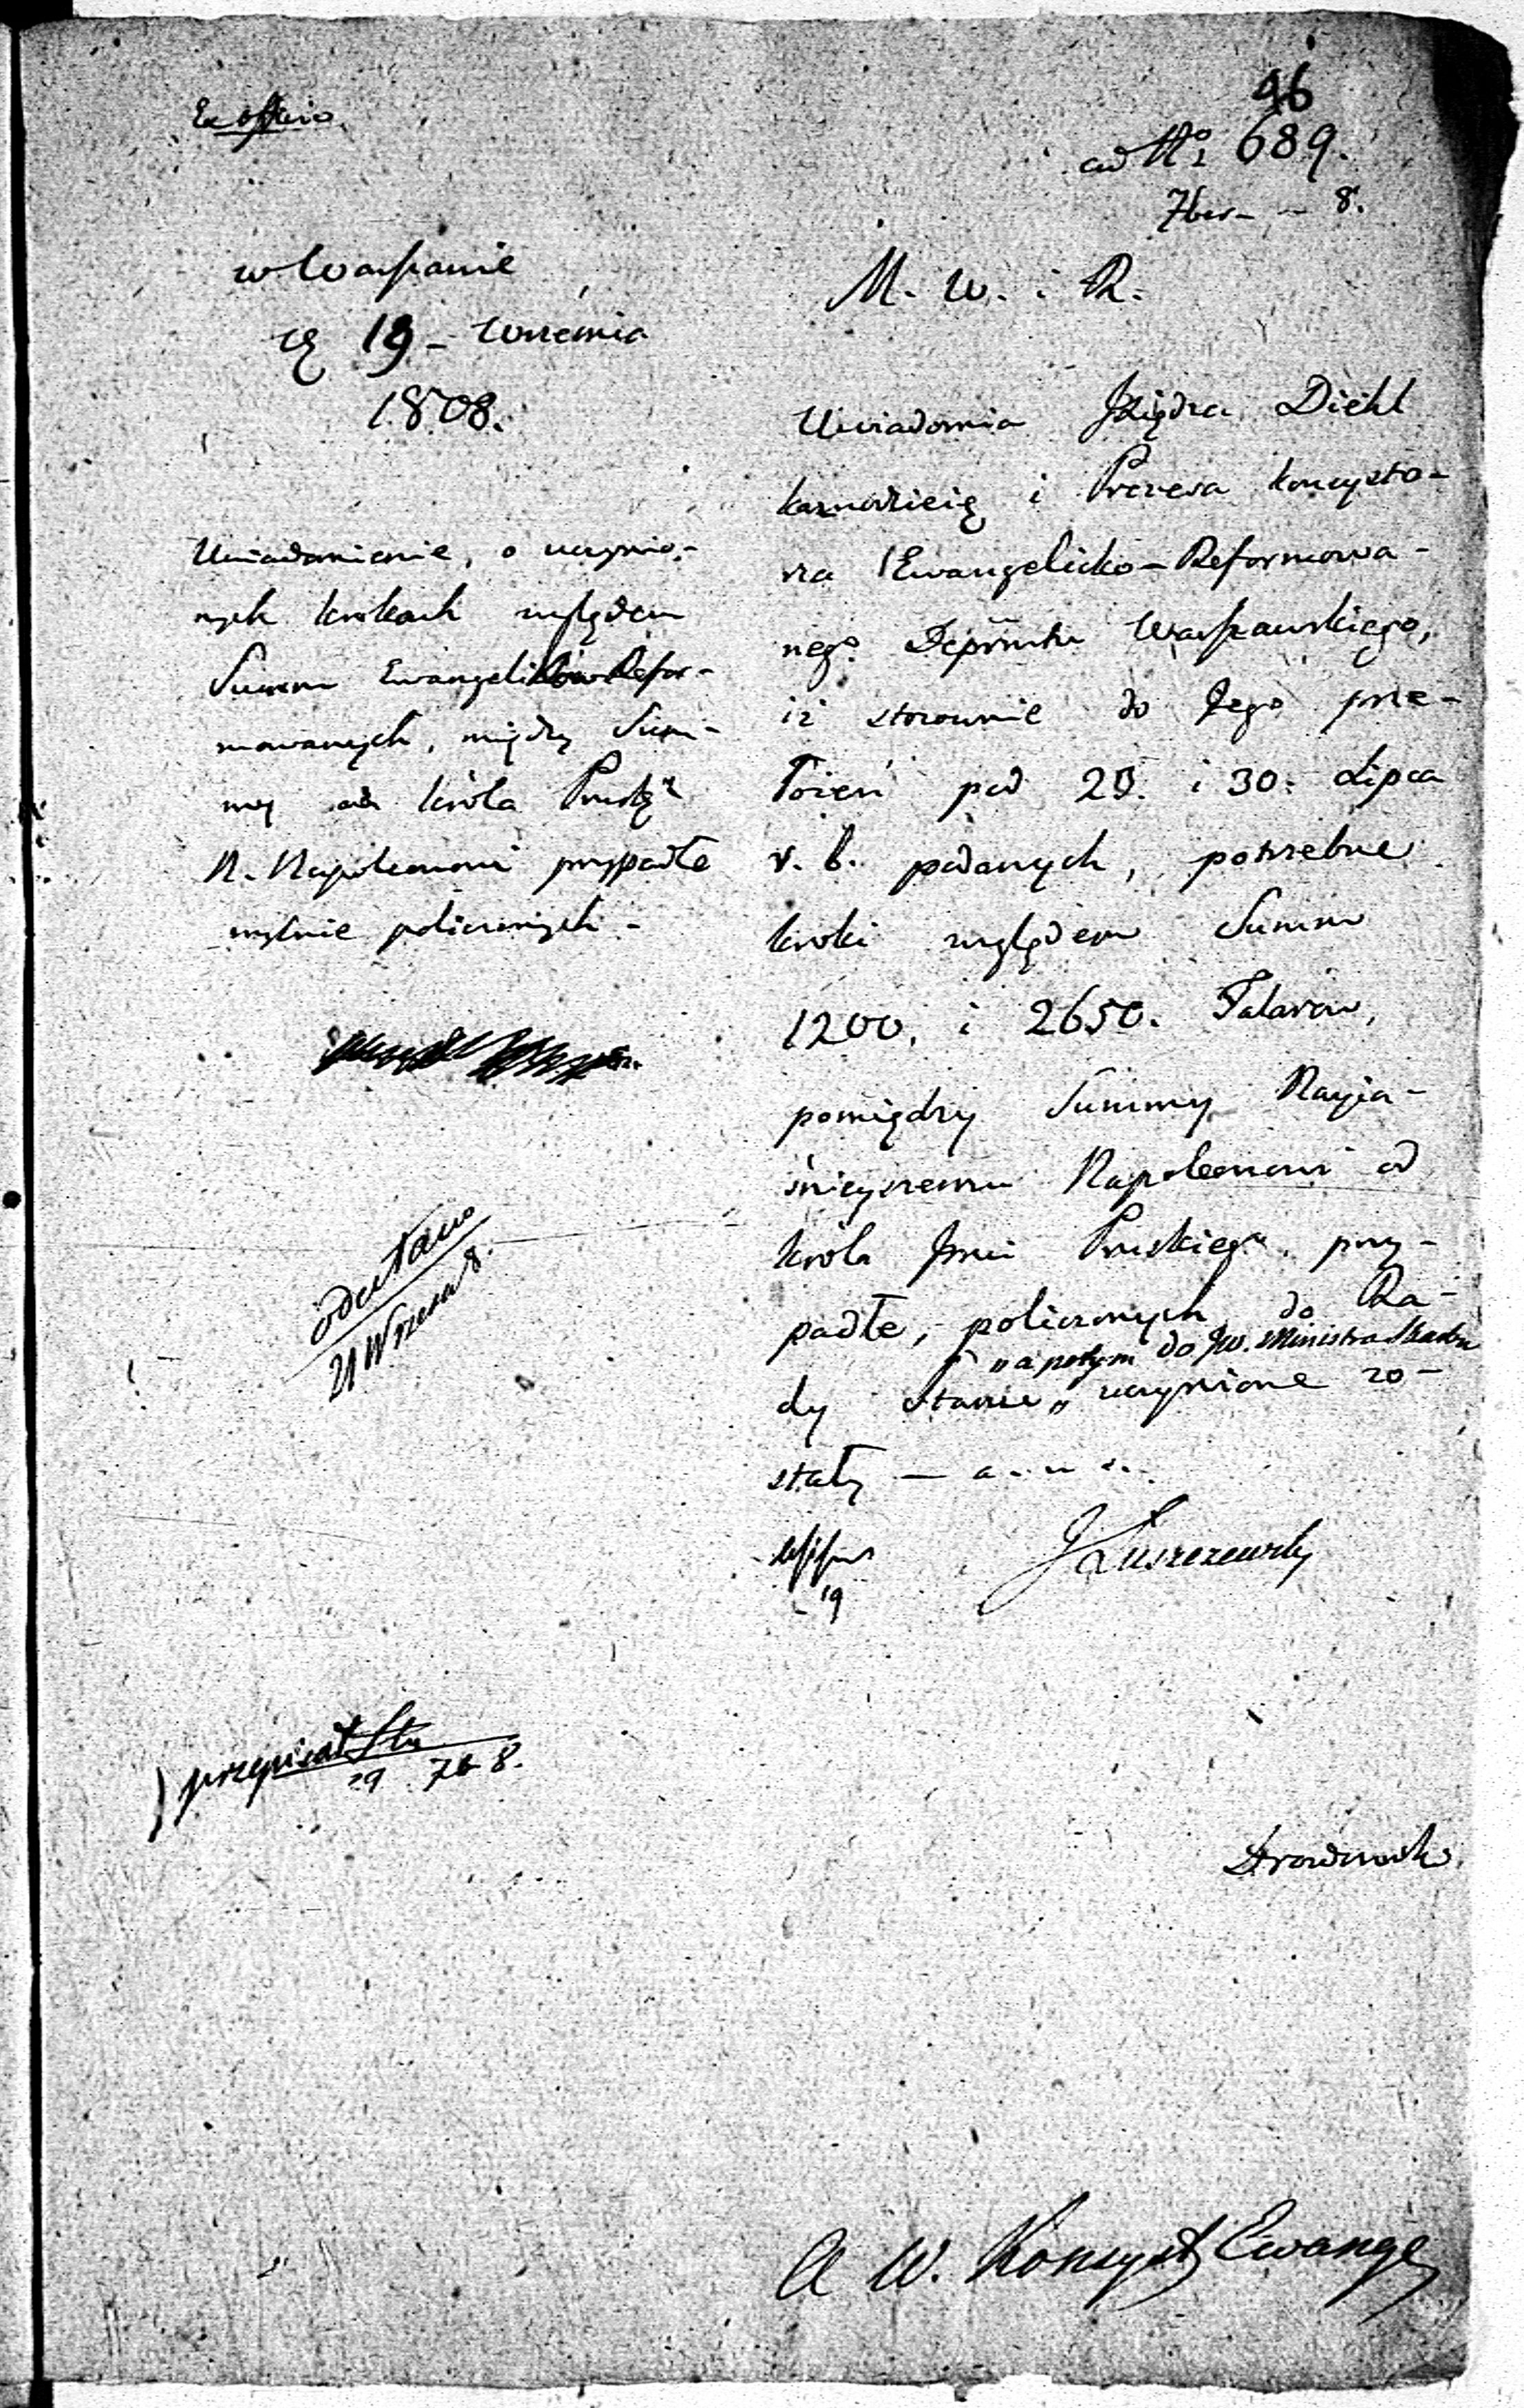 Ex officio
96
ad No 689.
7ber – – 8.
w Warszawie
dẏ 19 – Września
1808.
Uwiadomienie, o uczynio-
nych krokach względem
Summ Ewangelików Refor-
mowanych, między Sum-
my od króla Prusk
N. Napoleonowi przypadłe
mylnie policzonych –
odesłano
21 Wrześ 8.
przepisał
19 7b 8.
M. W. i R.
Uwiadomia Xiędza Diehl
kaznodzieię i Prezesa konsysto-
rza Ewangelicko – Reformowa-
nego Depmtu Warszawskiego,
iż stosownie do Jego prze-
łożeń pod 29. i 30. Lipca
r. b. podanych, potrzebne
kroki względem Summ
1200. i 2650. Talarów,
pomiędzy Summy Nayia-
śnieyszemu Napoleonowi od
króla Jmci Pruskiego, przy-
padłe, policzonych do Ra-
„a potym do JW. Ministra Skarbu
dy Stanu „ uczynione zo-
stały —
19
J Łuszczewski
A W. Konsyst Ewange